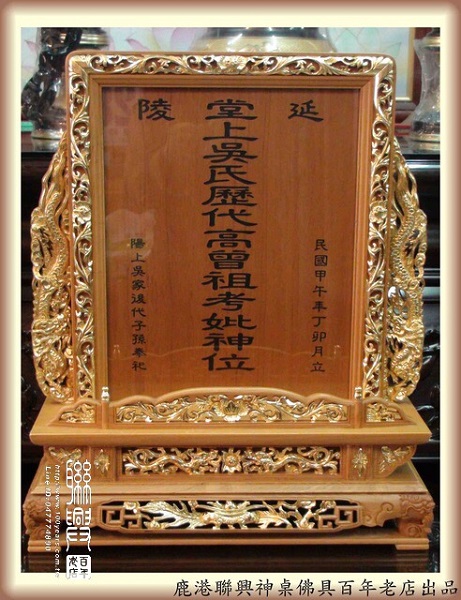 延陵
民國甲午年丁卯月立
堂上吳氏歷代高曾祖考妣神位
陽上吳家後代子孫奉祀
聯興
百年老店
http://www.100years.com.tw
Line ID:047774890
鹿港聯興神桌佛具百年老店出品